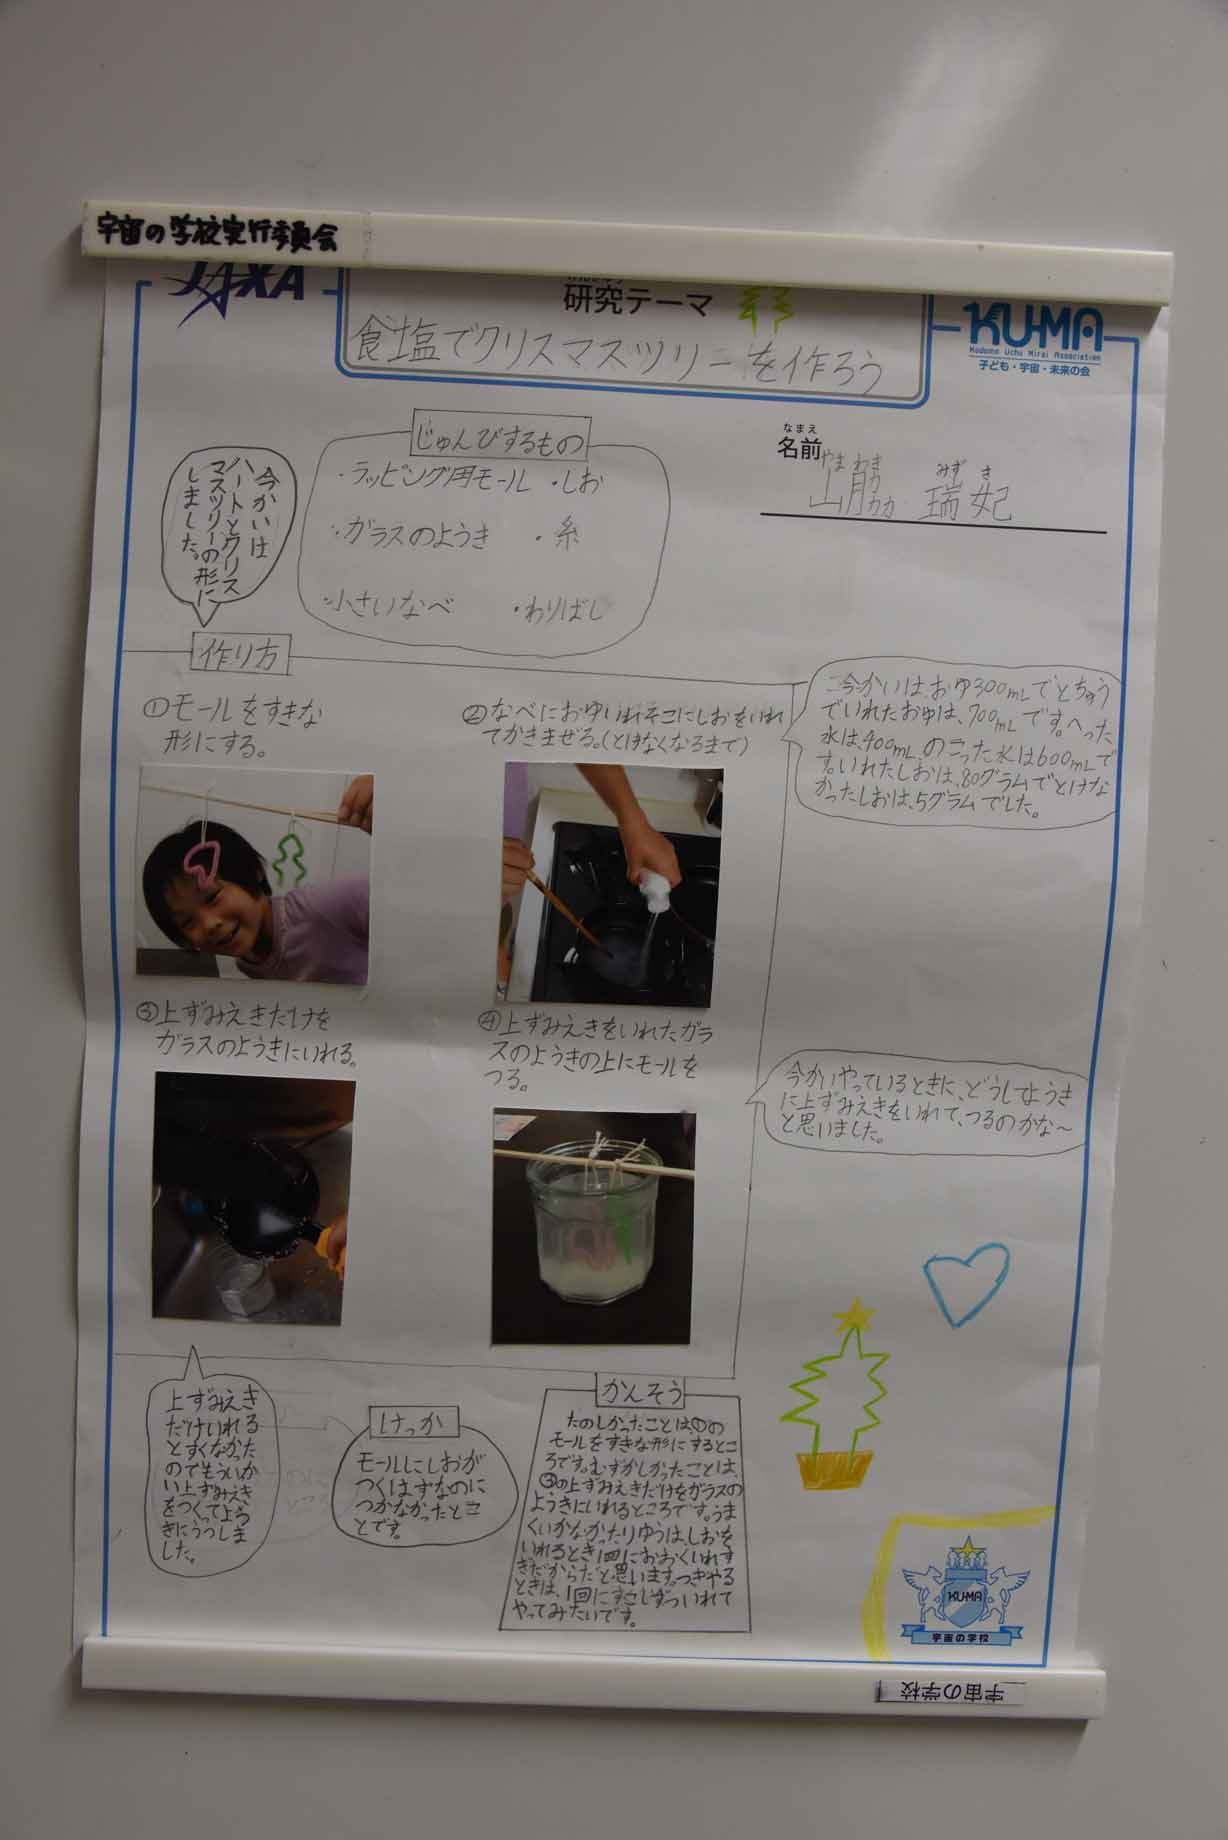 宇宙の学校実行委員会
JAXA
研究テーマ
食塩でクリスマスツリーを作ろう
KU-MA
Kodomo Uchu Mirai Association
子ども・宇宙・未来の会
なまえ
名前
やま わき みず き
山脇 瑞妃
じゅんびするもの
・ラッピング用モール ・しお
・ガラスのようき ・糸
・小さいなべ ・わりばし
今かいは
ハートとクリス
マスツリーの形に
しました。
作り方
①モールをすきな
形にする。
②なべにおゆいれそこにしおをいれ
てかきまぜる。(とけなくなるまで)
今かいは、おゆ300mLでとちゅう
でいれたおゆは、700mLです。へった
水は、400mL、のこった水は600mLで
す。いれたしおは、80グラムでとけな
かったしおは、5グラムでした。
③上ずみえきだけを
ガラスのようきにいれる。
④上ずみえきをいれたガラ
スのようきの上にモールを
つる。
今かいやっているときに、どうしてようき
に上ずみえきをいれて、つるのかな〜
と思いました。
上ずみえき
だけいれる
とすくなかった
のでもういっか
い上ずみえき
をつくってよう
きにうつしま
した。
けっか
モールにしおが
つくはずなのに
つかなかったこ
とです。
かんそう
たのしかったことは、①の
モールをすきな形にするとこ
ろです。むずかしかったことは、
③の上ずみえきだけをガラスの
ようきにいれるところです。うま
くいかなかったりゆうは、しおを
いれるとき1回におおくいれす
ぎたからだと思います。つぎやる
ときは、1回にすこしずついれて
やってみたいです。
KU-MA
宇宙の学校
宇宙の学校